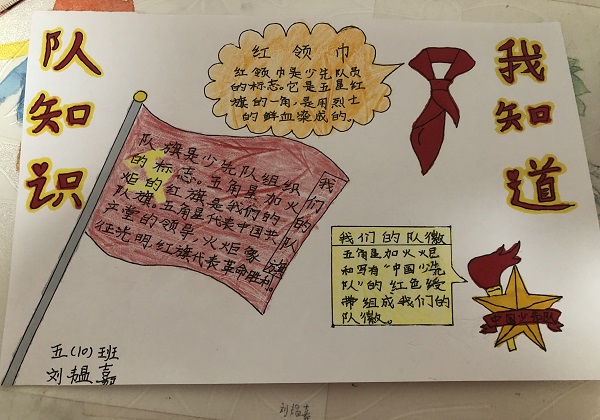 我知道
队知识
红领巾
红领巾是少先队员
的标志。它是五星红
旗的一角,是用烈士
的鲜血染成的。
我们的队旗
队旗是少先队组织
的标志。五角星加火
炬的红旗是我们的
队旗。五角星代表中国共
产党的领导,火炬象
征光明,红旗代表革命胜利。
我们的队徽
五角星加火炬
和写有“中国少先
队”的红色绶
带组成我们的
队徽。
中国少先队
五(10)班
刘韫嘉